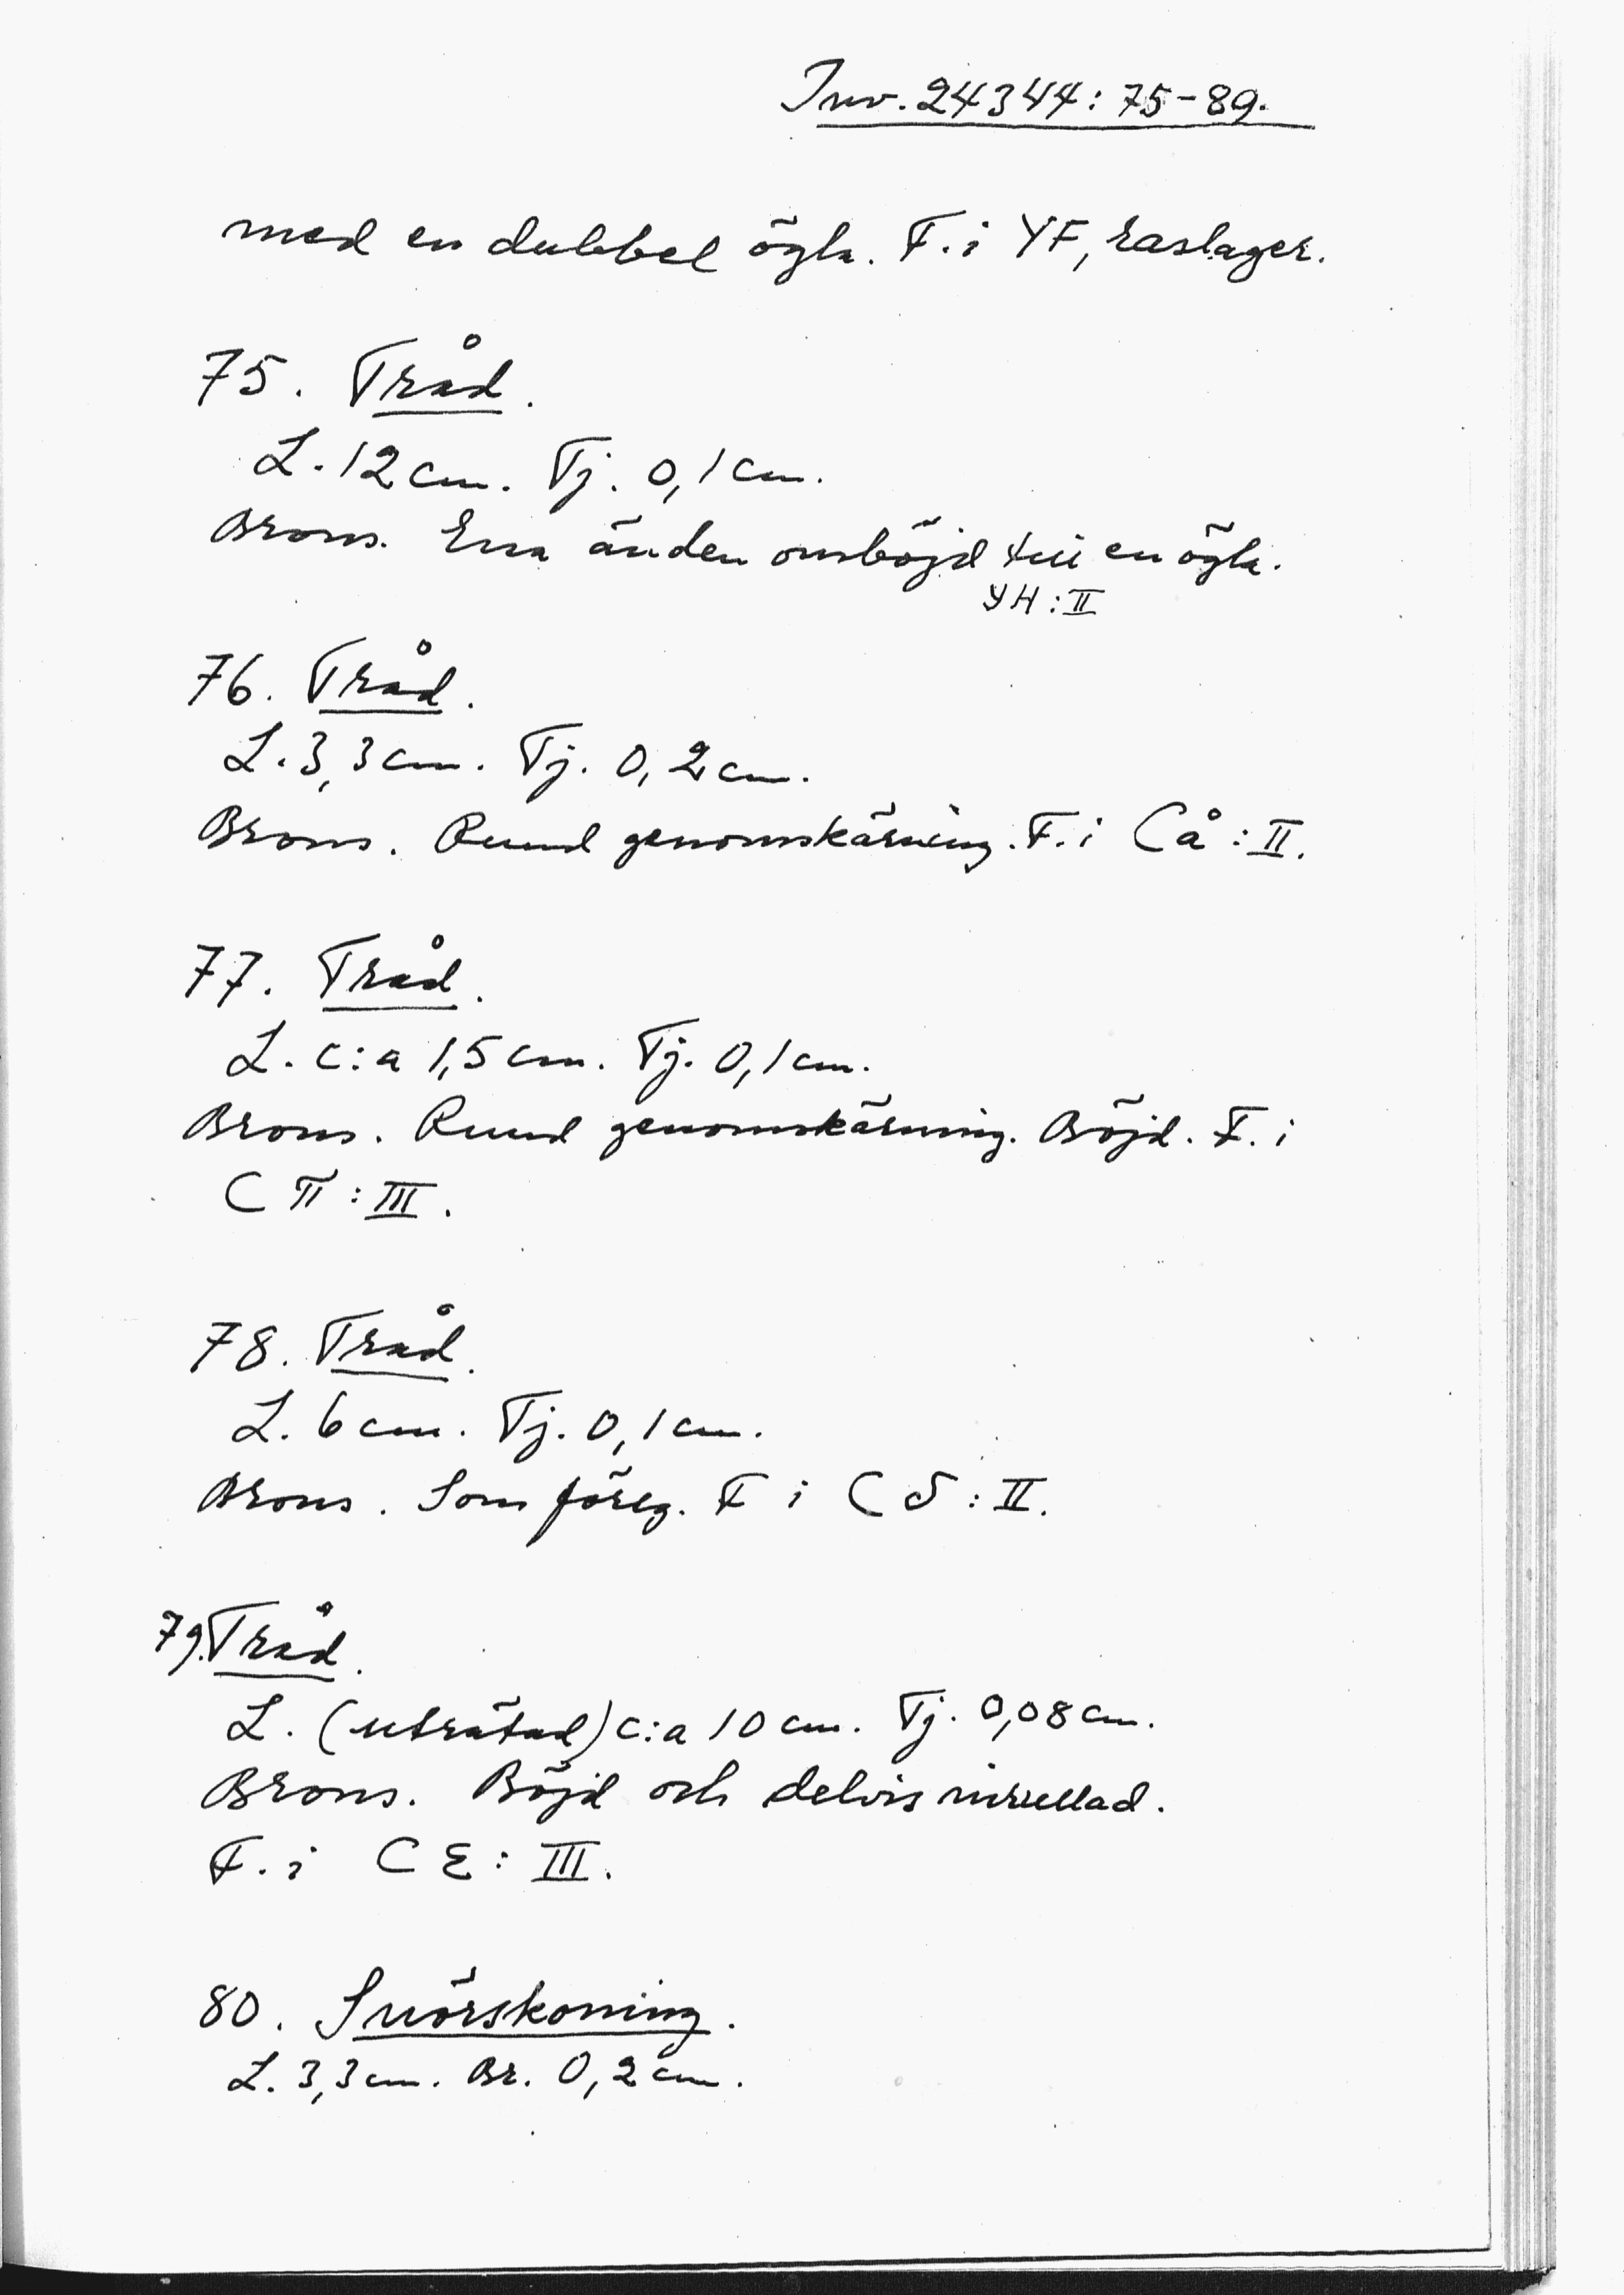 Inv. 24344: 75-89.
med en dubbel ögla. F. i YF, raslager.
75. Tråd.
L. 12 cm. Tj. 0,1 cm.
Brons. Ena änden omböjd till en ögla.
YH: II
76. Tråd.
L. 3,3 cm. Tj. 0,2 cm.
Brons. Rund genomskärning. F. i Cå: II.
77. Tråd.
L. c:a 1,5 cm. Tj. 0,1 cm.
Brons. Rund genomskärning. Böjd. F. i
C π: III.
78. Tråd.
L. 6 cm. Tj. 0,1 cm.
Brons. Som föreg. F i C δ: II.
79. Tråd.
L. (uträtad) c:a 10 cm. Tj. 0,08 cm.
Brons. Böjd och delvis inrullad.
F. i C ε: III.
80. Snörskoning.
L. 3,3 cm. Br. 0,2 cm.